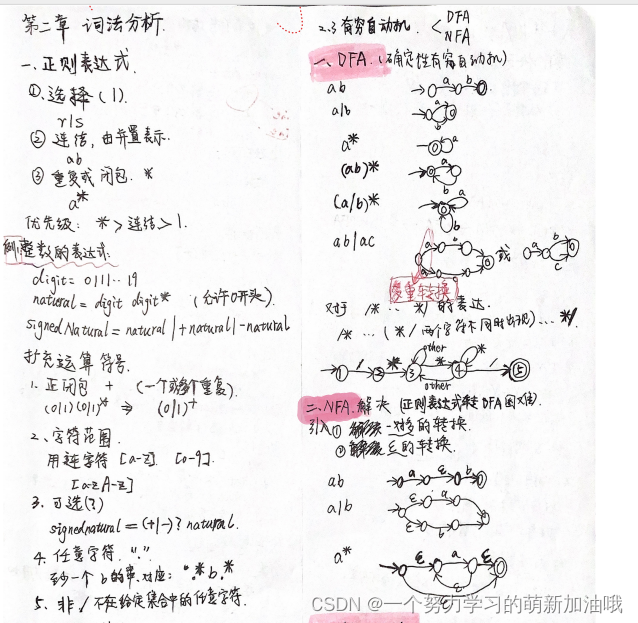 第二章 词法分析.
一、正则表达式.
①.选择(|).
r|s
② 连结,由并置表示.
ab
③ 重复或闭包. *
a*
优先级: * > 连结 > |.
例:整数的表达式:
digit = 0|1|..|9
natural = digit digit* (允许0开头)
signedNatural = natural | + natural | - natural
扩充运算符号.
1. 正闭包 + (一个或多个重复).
(0|1)(0|1)* ⇒ (0|1)+
2、字符范围.
用连字符 [a-z]. [0-9].
[a-zA-z]
3. 可选(?)
signednatural = (+|-)? natural.
4. 任意字符. "."
至少一个b的串.对应: .*b.*
5、非 不在给定集合中的任意字符.
2.3 有穷自动机. < DFA
NFA
一、DFA. (确定性有穷自动机)
ab
a b
a|b
a
b
a*
a
(ab)*
a
b
(a|b)*
b a
b
ab|ac
a b
a c
或
a b
c
转换
对于 /* .. */ 的表达.
/* ... ( */ 两个字符不同时出现) ... */
other
1 / 2 * 3 * 4 / 5
*
other
二、NFA. 解决 (正则表达式转DFA困难).
引入① 一对多的转换.
② ε的转换.
ab
a ε b
a|b
ε a
ε b
a*
ε a ε
ε
ε
CSDN @一个努力学习的萌新加油哦